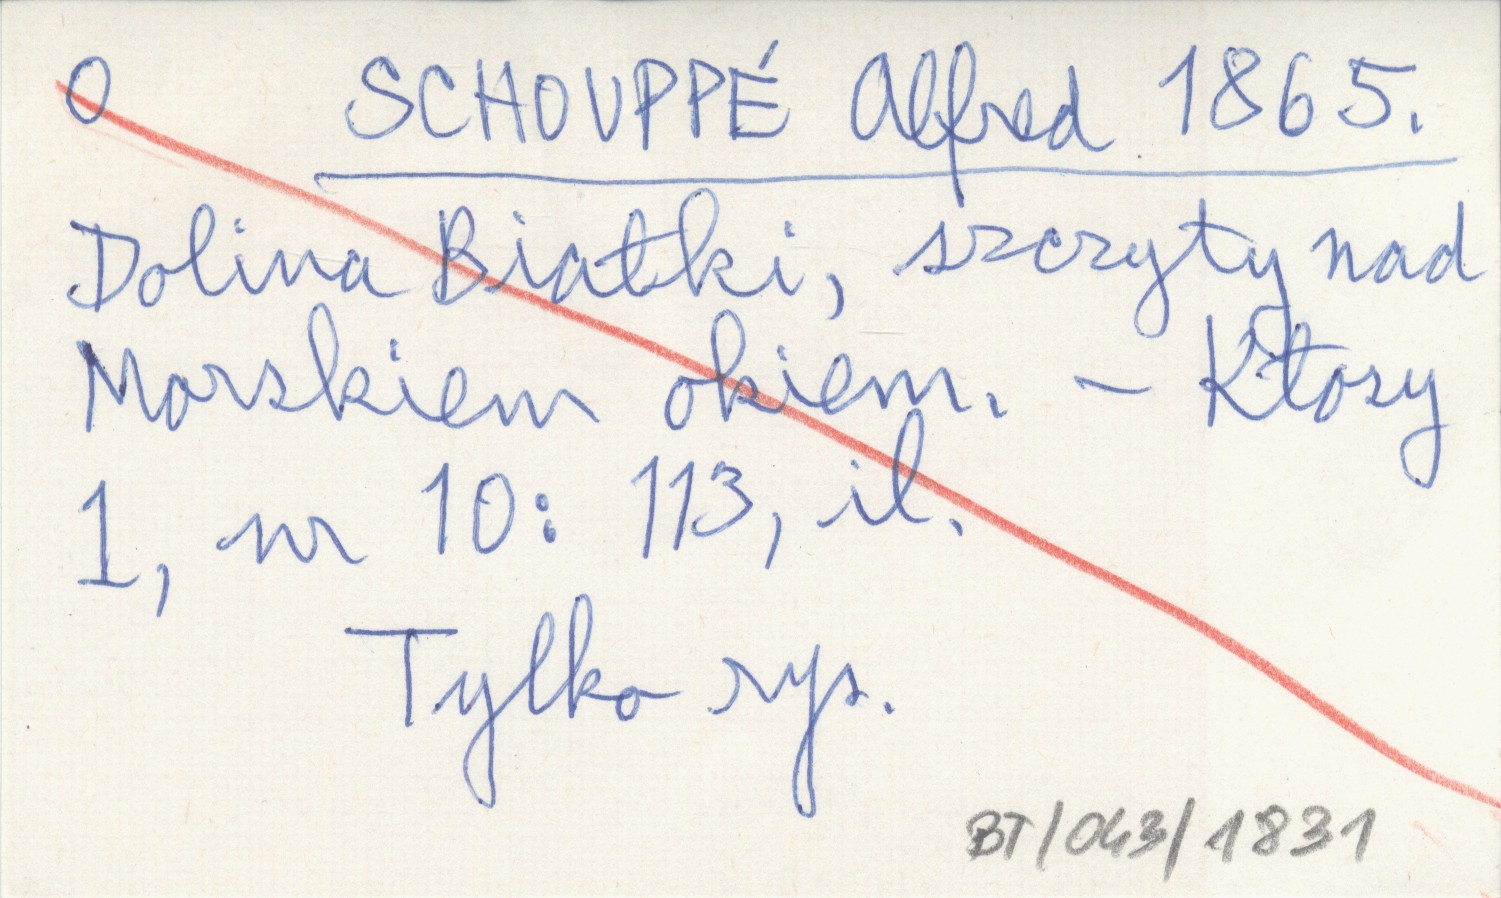 O SCHOUPPÉ Alfred 1865.
Dolina Białki, szczyty nad
Morskiem okiem. – Kłosy
1, nr 10: 113, il.
Tylko rys.
BT/043/1831